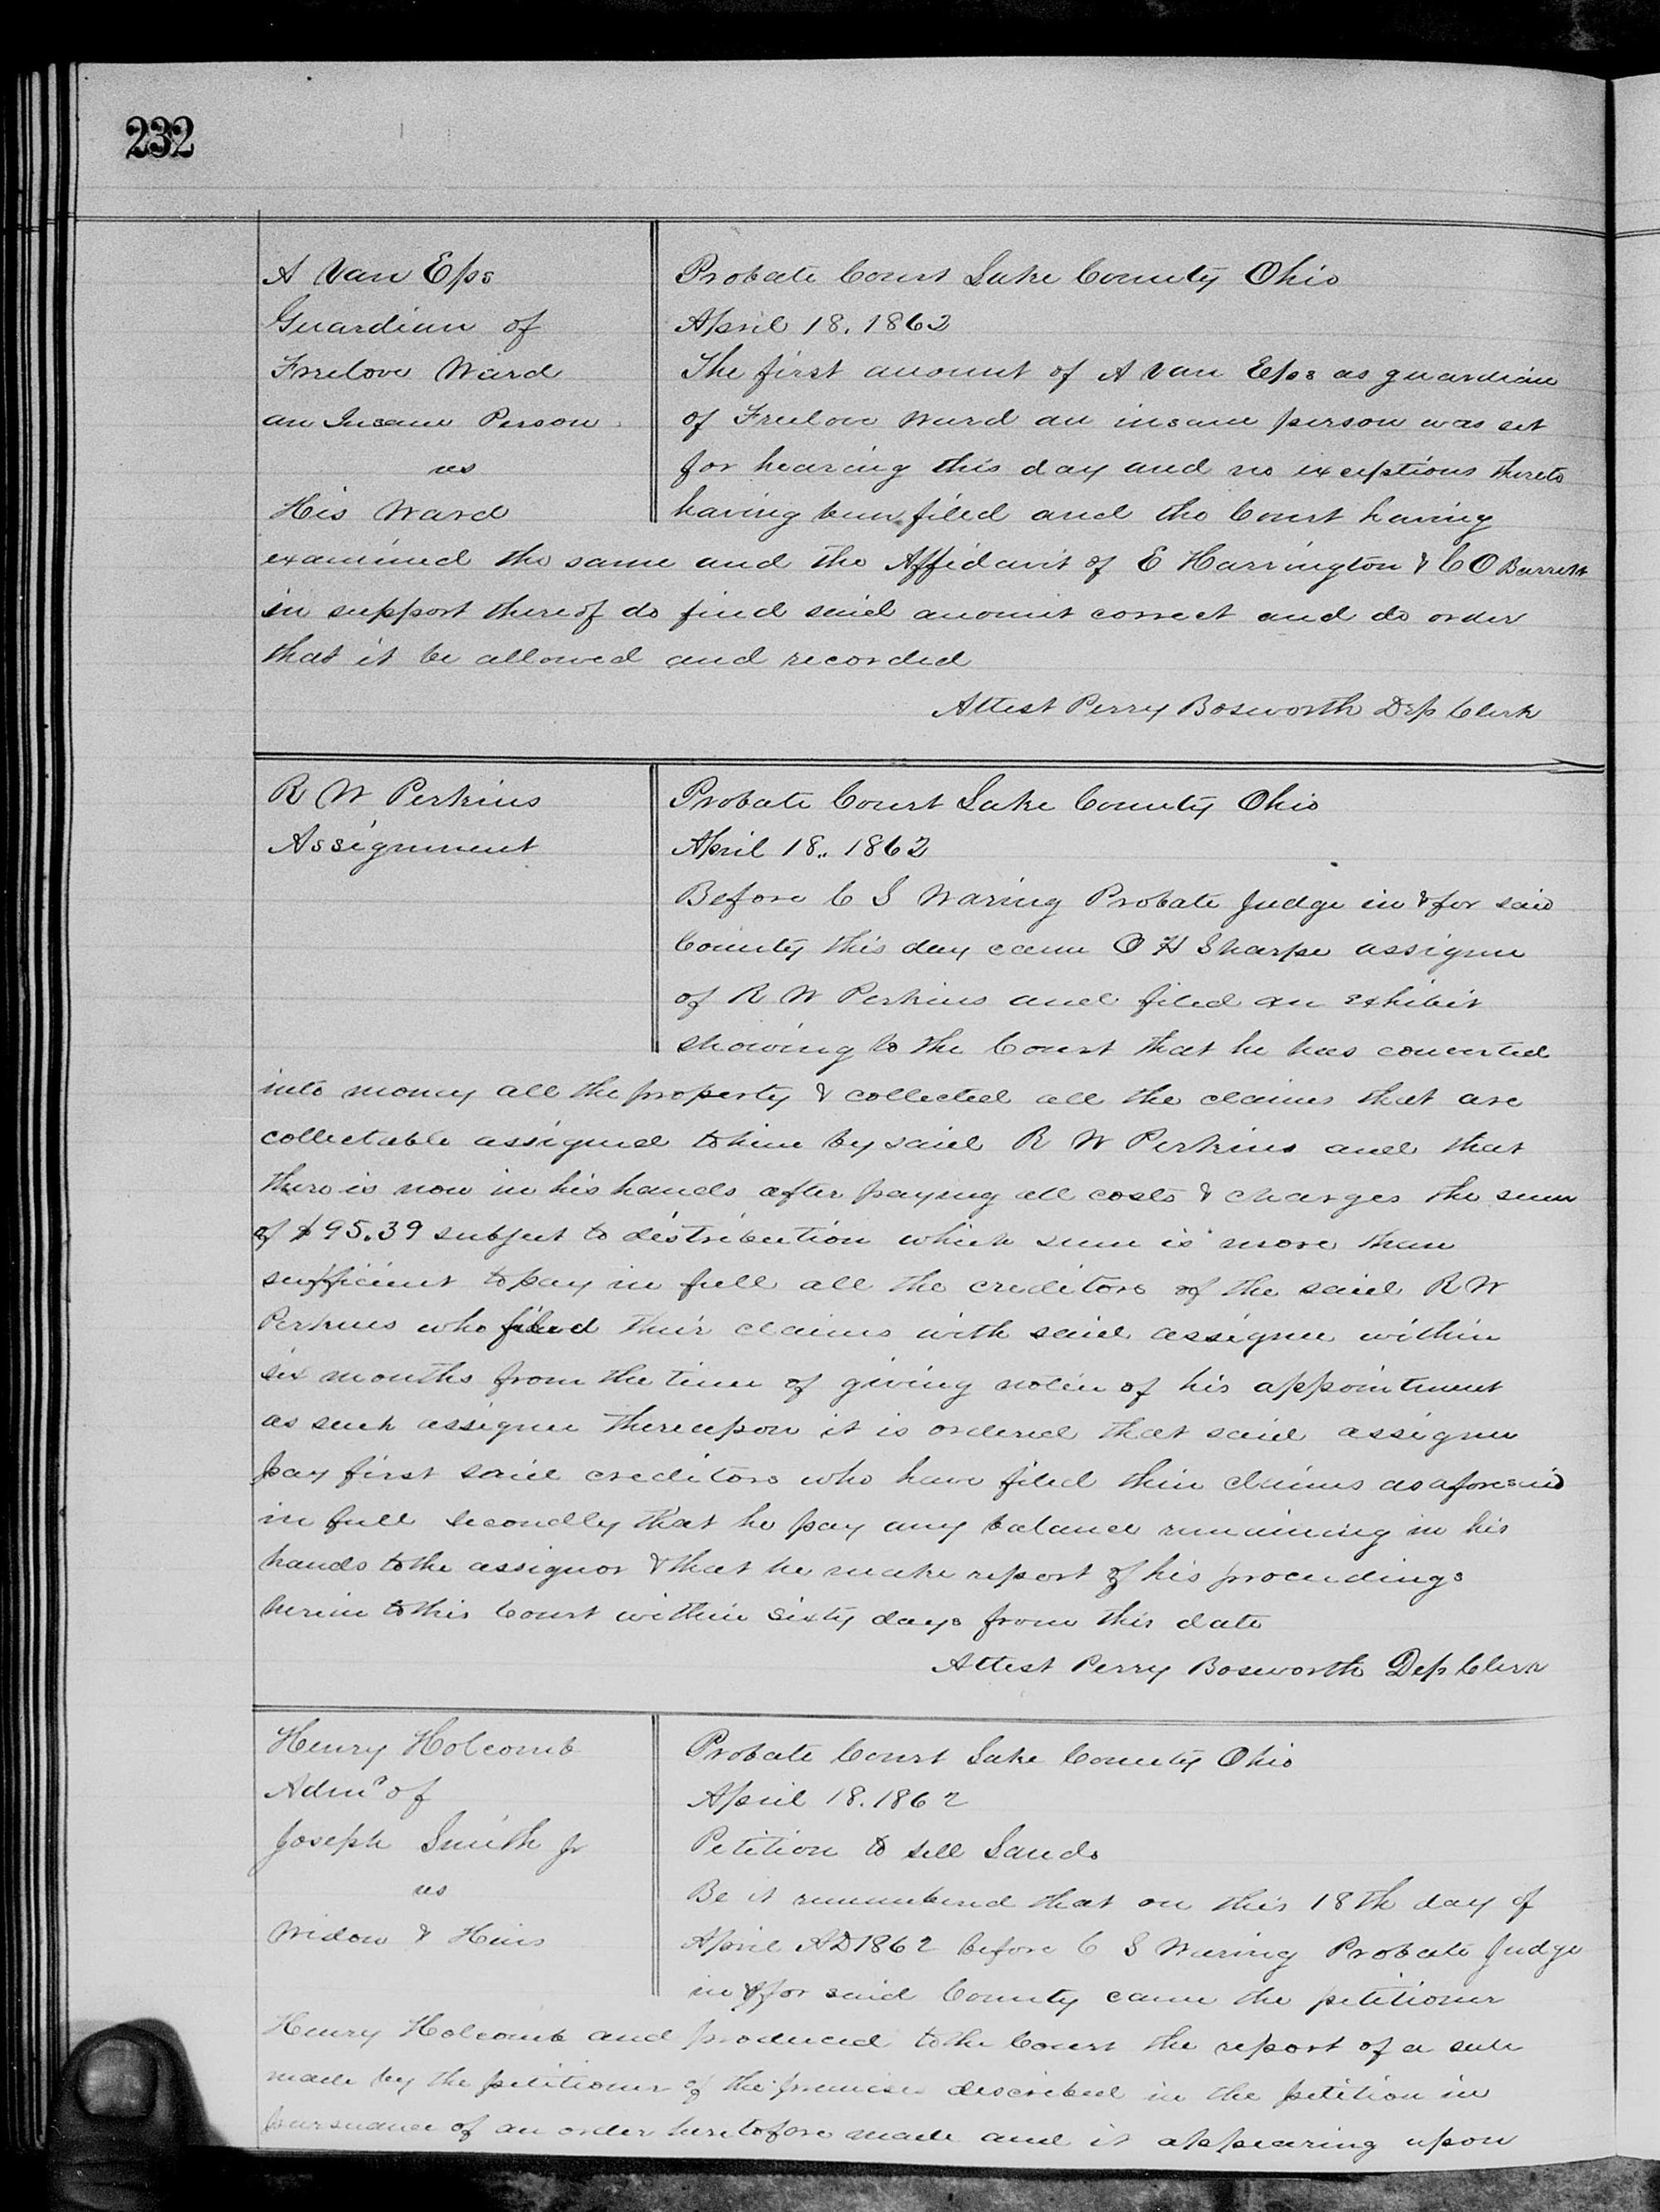 232
A Van Eps
Guardian of
Freelove Ward
an Insane Person
vs
His Ward
Probate Court Lake County Ohio
April 18. 1862
The first account of A Van Eps as guardian
of Freelove Ward an insane person was set
for hearing this day and no exceptions thereto
having been filed and the Court having
examined the same and the Affidavit of E Harrington & C O Barrett
in support thereof do find said account correct and do order
that it be allowed and recorded
Attest Perry Bosworth Dep Clerk
R W Perkins
Assignment
Probate Court Lake County Ohio
April 18. 1862
Before C S Waring Probate Judge in & for said
County this day came O H Sharpe assignee
of R W Perkins and filed an exhibit
showing to the Court that he has converted
into money all the property & collected all the claims that are
collectable assigned to him by said R W Perkins and that
there is now in his hands after paying all costs & charges the sum
of $95.39 subject to distribution which sum is more than
sufficient to pay in full all the creditors of the said R W
Perkins who filed their claims with said assignee within
six months from the time of giving notice of his appointment
as such assignee thereupon it is ordered that said assignee
pay first said creditors who have filed their claims as aforesaid
in full secondly that he pay any balance remaining in his
hands to the assignor & that he make report of his proceedings
herein to this Court within sixty days from this date
Attest Perry Bosworth Dep Clerk
Henry Holcomb
Admr of
Joseph Smith Jr
vs
Widow & Heirs
Probate Court Lake County Ohio
April 18. 1862
Petition to sell Lands
Be it remembered that on this 18th day of
April AD 1862 before C S Waring Probate Judge
in & for said County came the petitioner
Henry Holcomb and produced to the Court the report of a sale
made by the petitioner of the premises described in the petition in
pursuance of an order heretofore made and it appearing upon